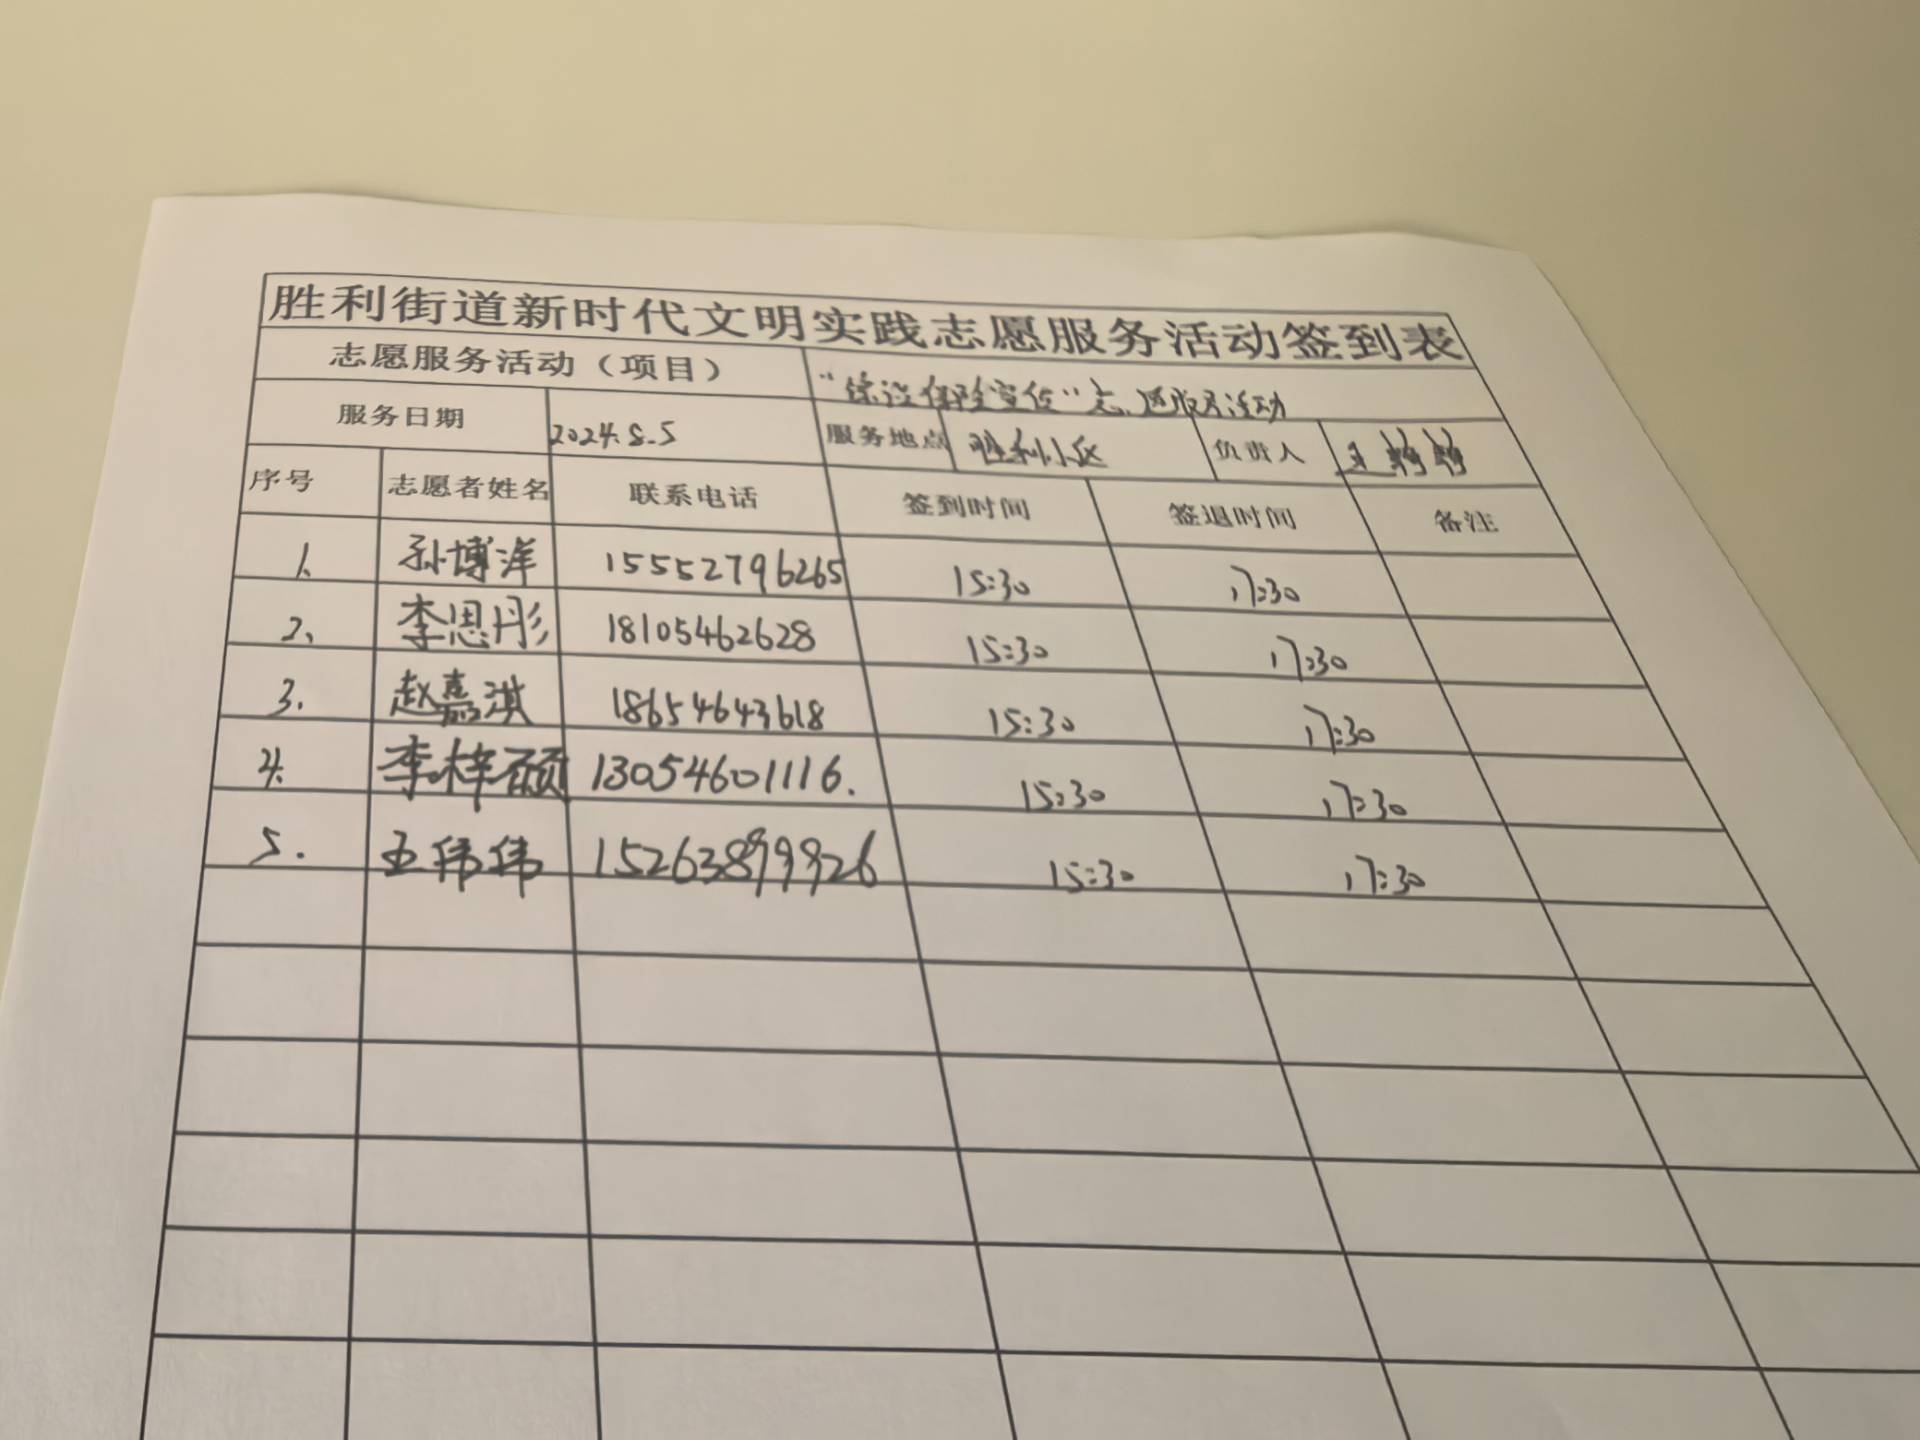 胜利街道新时代文明实践志愿服务活动签到表
志愿服务活动（项目） 保险宣传"志愿服务活动
服务日期 2024.8.5 服务地点 胜利小区 负责人 王
序号 志愿者姓名 联系电话 签到时间 签退时间 备注
1. 孙博洋 15552796265 15:30 17:30
2. 李思彤 18105462628 15:30 17:30
3. 赵嘉淇 18654643618 15:30 17:30
4. 李梓硕 13054601116. 15:30 17:30
5. 王伟伟 15263899926 15:30 17:30